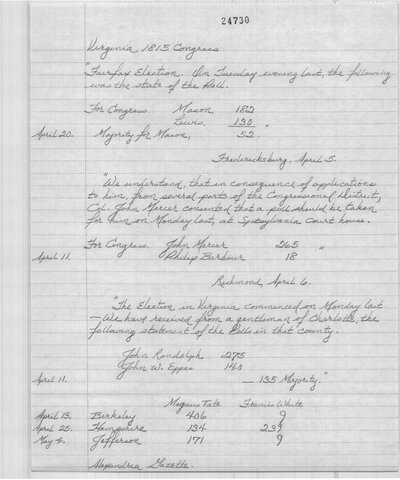 24730
Virginia 1815 Congress
"Fairfax Election. On Tuesday evening last, the following
was the state of the Poll.
For Congress Mason, 182
Lewis, 130 "
April 20. Majority for Mason, 52.
Fredericksburg, April 5.
"We understand, that in consequence of applications
to him, from several parts of the Congressional District,
Col. John Mercer consented that a poll should be taken
for him on Monday last, at Spotsylvania Court house.
For Congress. John Mercer 265 "
April 11. Philip Barbour 18
Richmond, April 6.
"The Election in Virginia commenced on Monday last
— We have received from a gentleman of Charlotte, the
following statement of the Polls in that county.
John Randolph 275
John W. Eppes 140
April 11. — 135 Majority."
Magnus Tate Francis White
April 13. Berkeley 406 9
April 25. Hampshire 134 239
May 4. Jefferson 171 9
Alexandria Gazette.